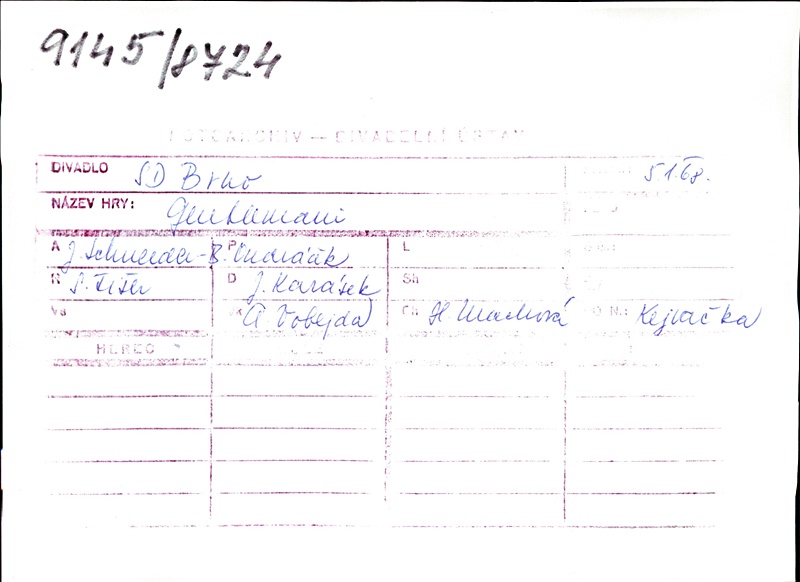 9145/8724
FOTOARCHIV — DIVADELNÍ ÚSTAV
DIVADLO SD Brno 5.1.68.
NÁZEV HRY: Gentlemani
A J. Schneider - B. Ondráček P L
R S. Fišer D J. Karásek Sh
Vd A. Vobejda Ch H. Machová O N.: Kejvačka
HEREC